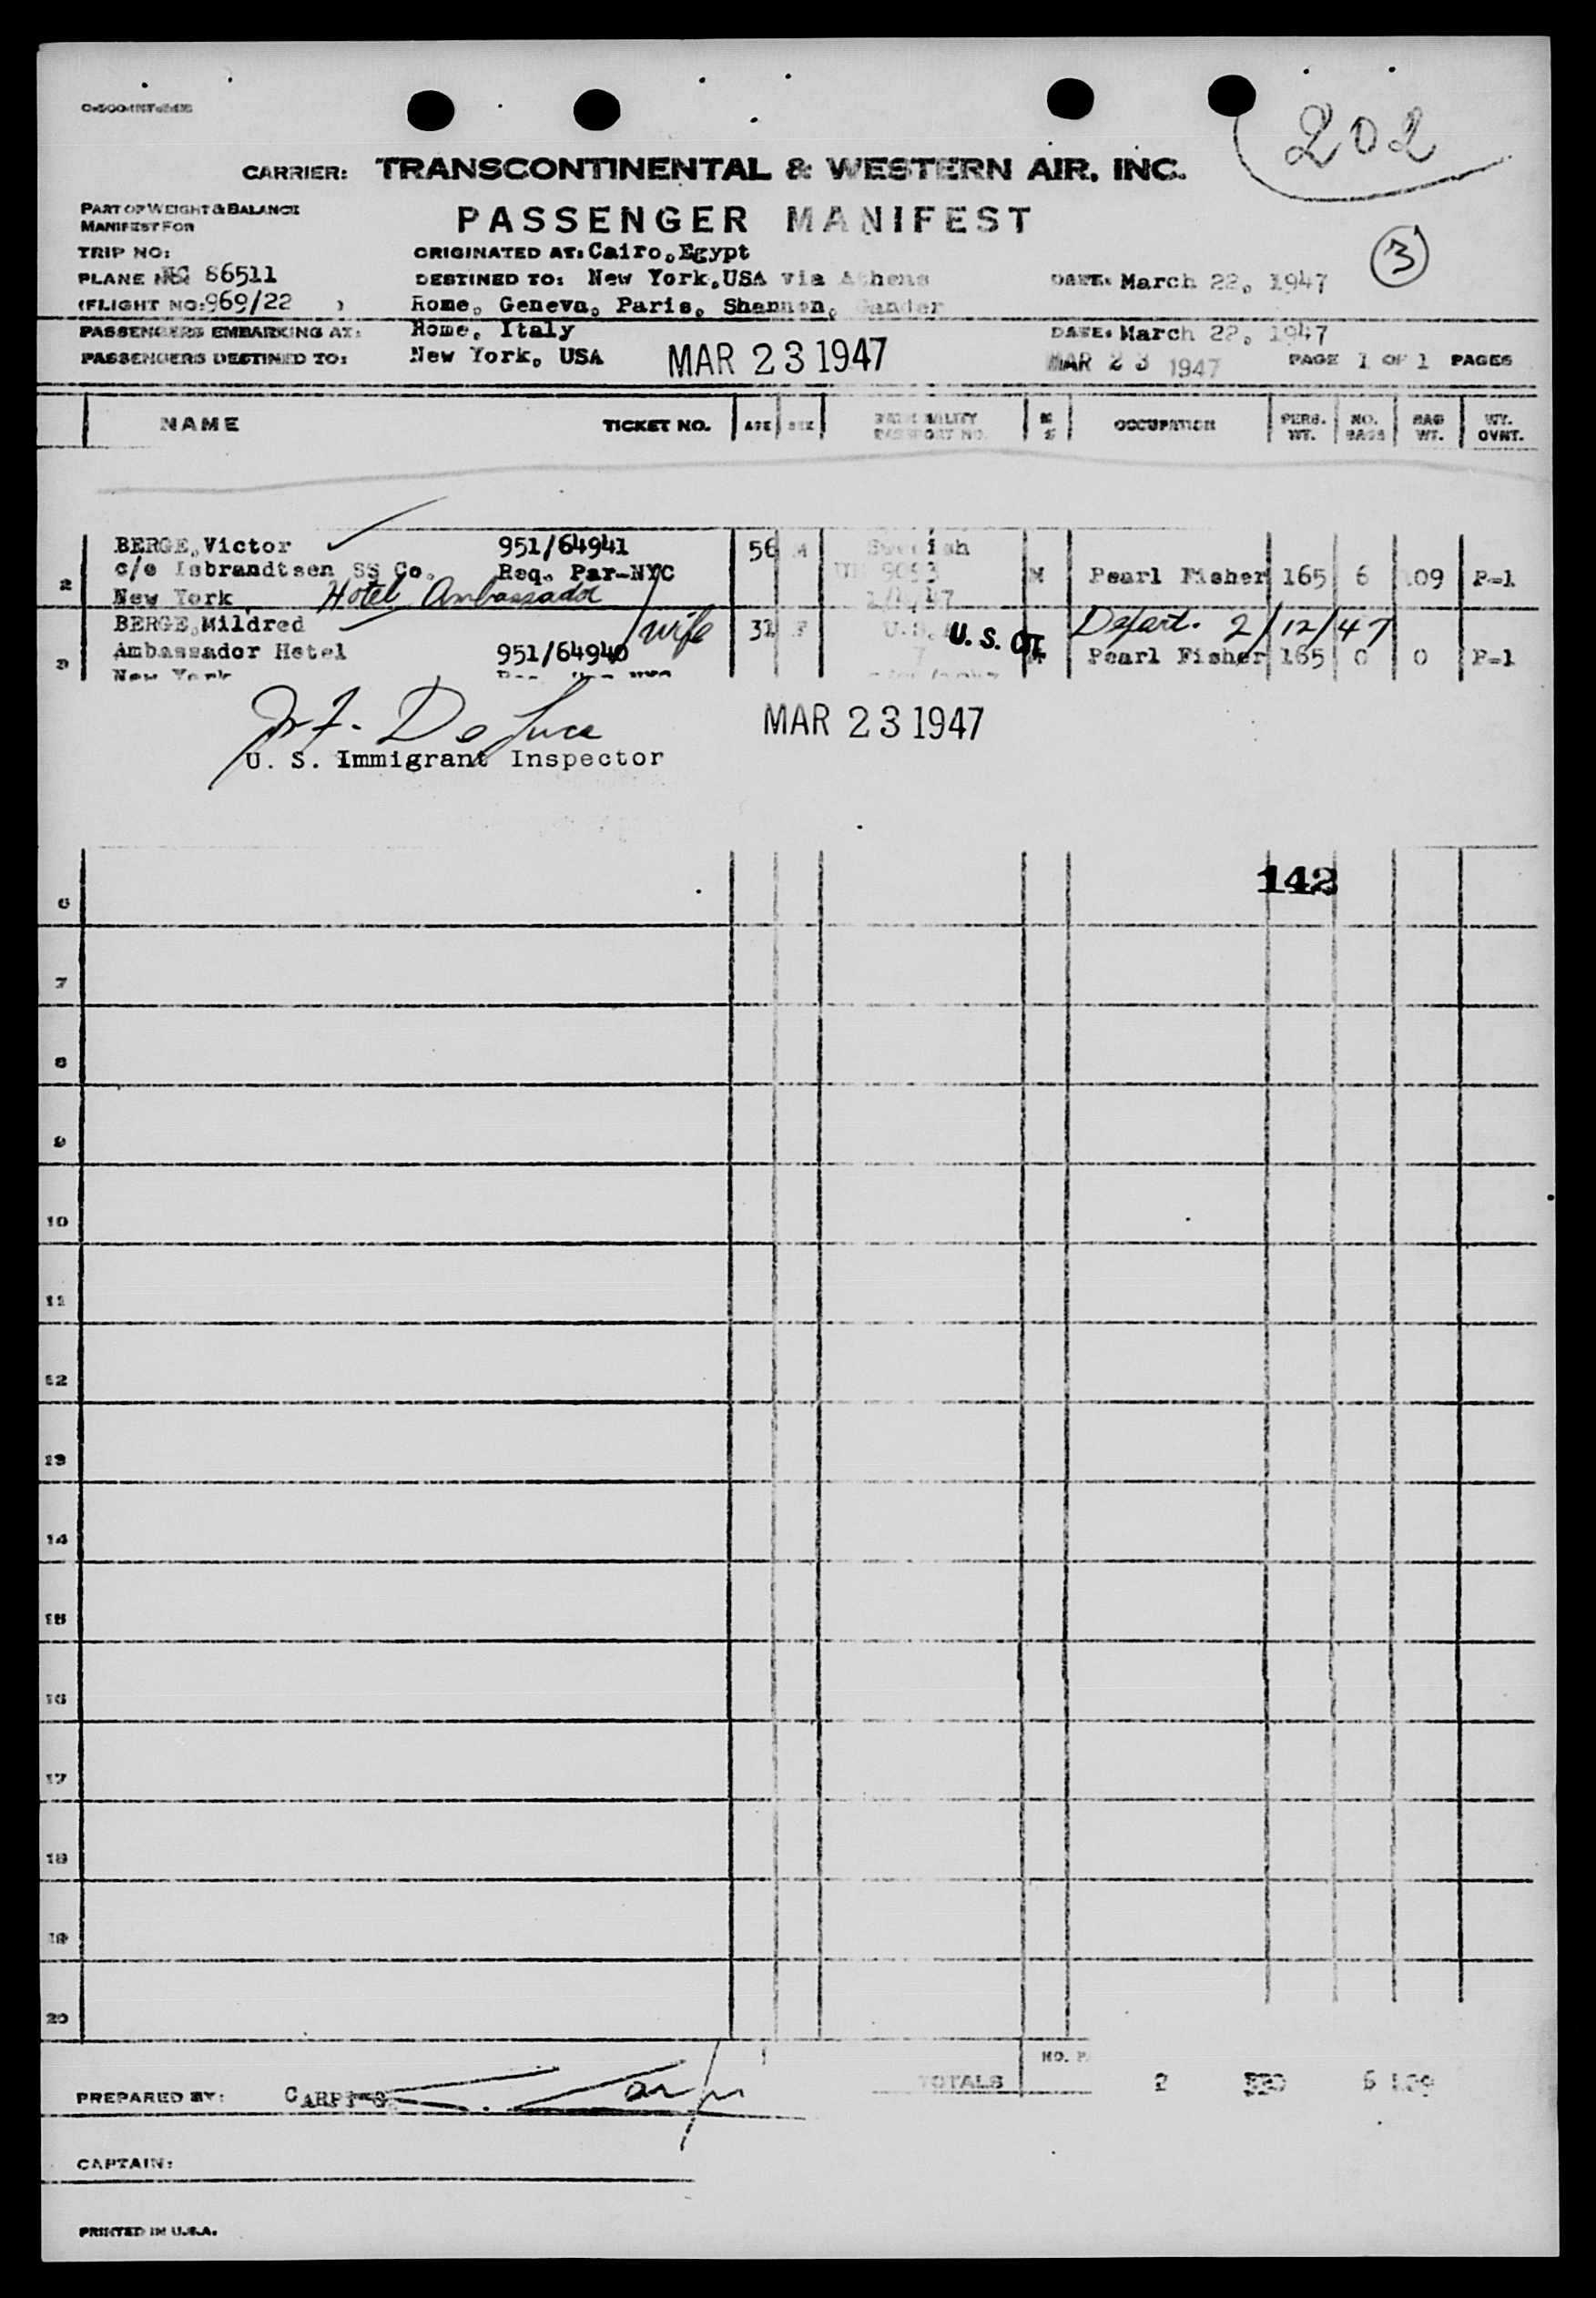 202
CARRIER: TRANSCONTINENTAL & WESTERN AIR, INC.
PART OF WEIGHT & BALANCE
MANIFEST FOR
PASSENGER MANIFEST
3
TRIP NO:
ORIGINATED AT: Cairo, Egypt
PLANE NO: NC 86511
DESTINED TO: New York, USA via Athens
DATE: March 22, 1947
(FLIGHT NO: 969/22 )
Rome, Geneva, Paris, Shannon, Gander
PASSENGERS EMBARKING AT: Rome, Italy
DATE: March 22, 1947
PASSENGERS DESTINED TO: New York, USA
MAR 23 1947
MAR 23 1947
PAGE 1 OF 1 PAGES
NAME TICKET NO. AGE SEX NATIONALITY PASSPORT NO. M S OCCUPATION PERS. WT. NO. BAGS BAG WT. WT. OVNT.
BERGE, Victor 951/64941 56 M Swedish
2 c/o Isbrandtsen SS Co. Req. Par-NYC 9093 M Pearl Fisher 165 6 109 P-1
New York Hotel Ambassador
BERGE, Mildred wife 31 F U.S. U. S. CIT. Depart. 2/12/47
3 Ambassador Hotel 951/64940 Pearl Fisher 165 0 0 P-1
New York
De Luca
MAR 23 1947
U. S. Immigrant Inspector
142
6
7
8
9
10
11
12
13
14
15
16
17
18
19
20
TOTALS NO. P. 2 330 6 109
PREPARED BY:
CAPTAIN:
PRINTED IN U.S.A.